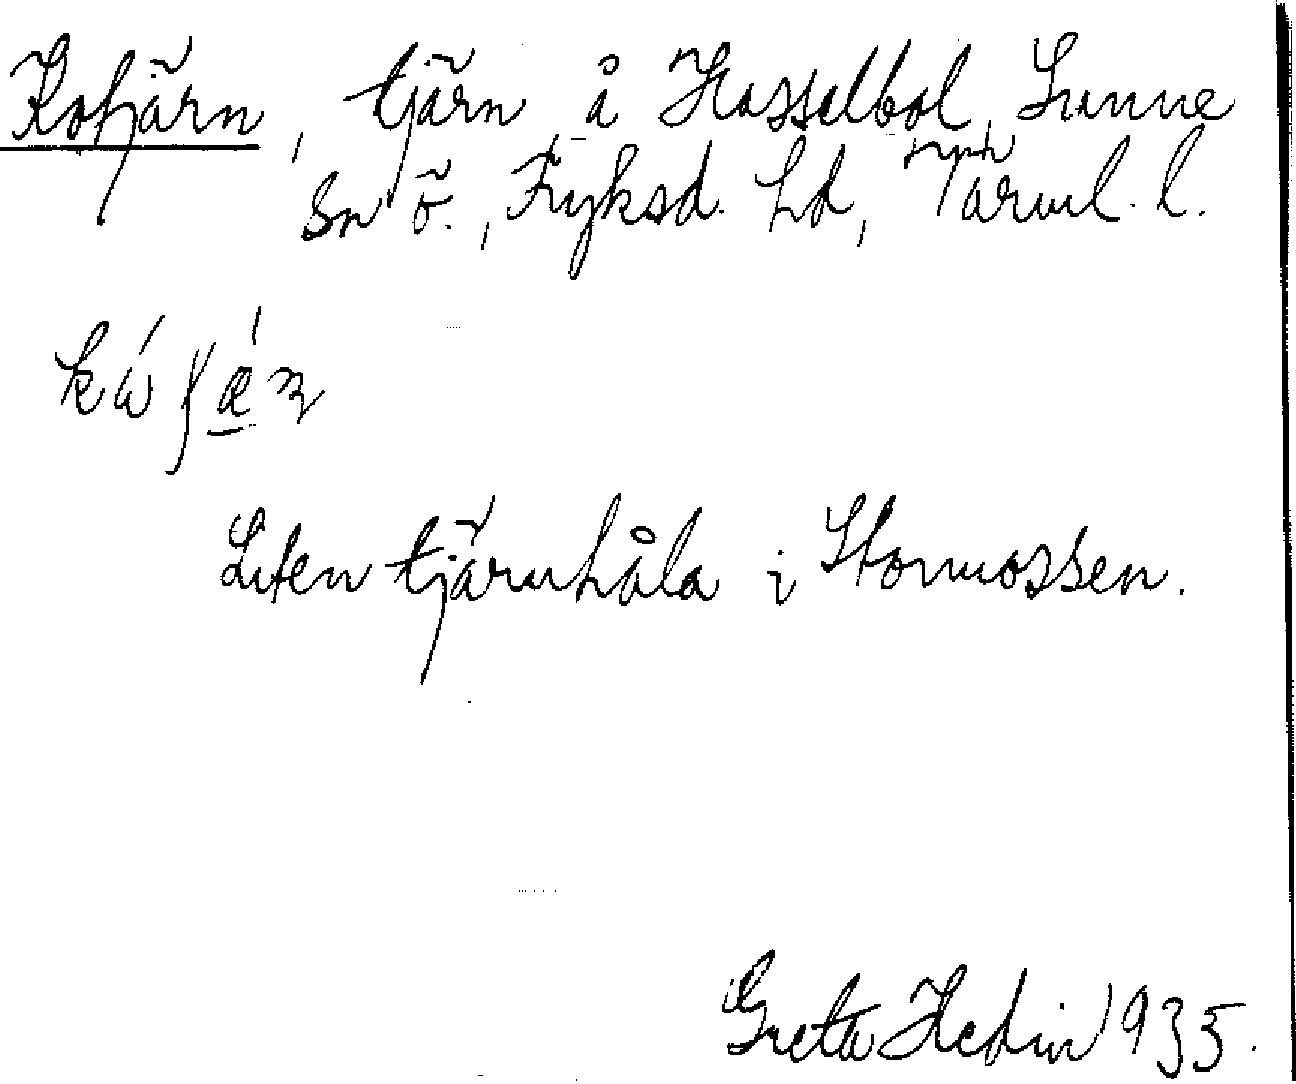 Kotjärn, tjärn å Hasselbol, Sunne
Sn ö., Fryksd. hd, Värml. l.
Liten tjärnhåla i Stormossen.
Greta Hedin 1935.